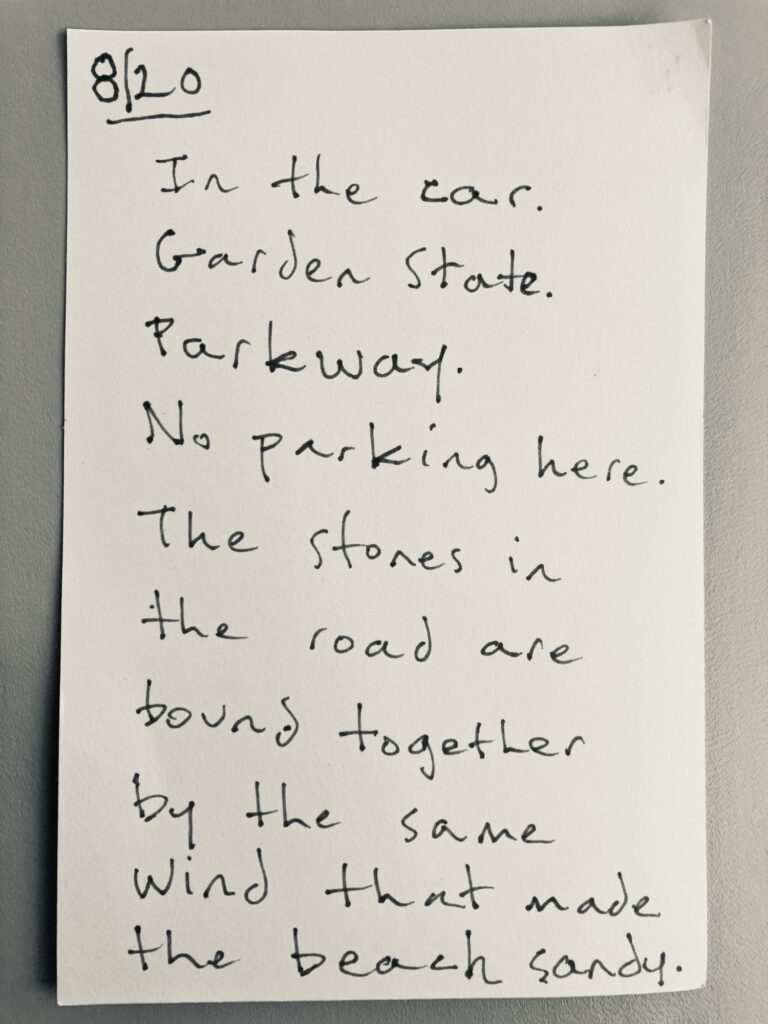 8/20
In the car.
Garden State.
Parkway.
No parking here.
The stones in
the road are
bound together
by the same
wind that made
the beach sandy.